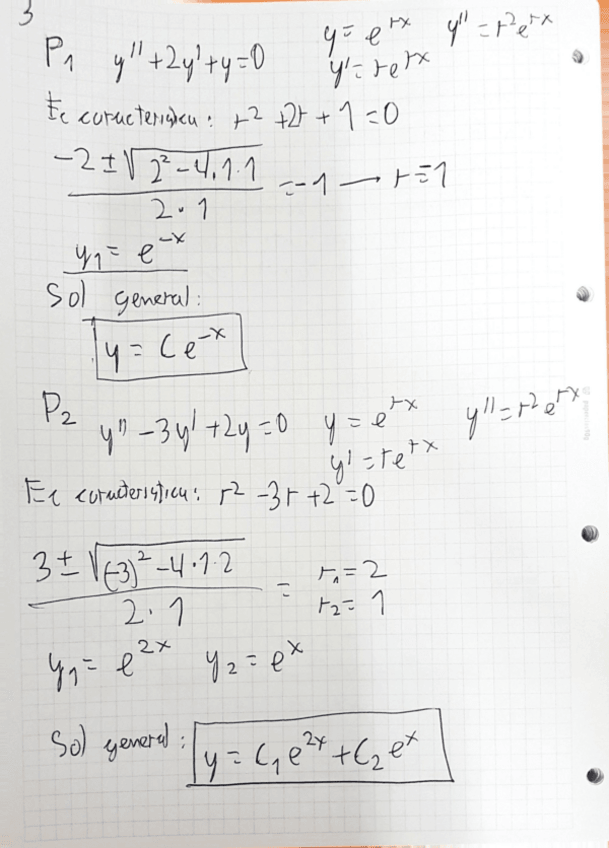 3
P1 y'' + 2y' + y = 0 y = e^{rx} y'' = r^2 e^{rx}
y' = re^{rx}
Ec caracteristica: r^2 + 2r + 1 = 0
-2 ± √(2^2 - 4.1.1) / 2·1 = -1 → r = 1
y1 = e^{-x}
Sol general:
y = Ce^{-x}
P2 y'' - 3y' + 2y = 0 y = e^{rx} y'' = r^2 e^{rx}
y' = re^{rx}
Ec caracteristica: r^2 - 3r + 2 = 0
3 ± √((-3)^2 - 4·1·2) / 2·1 = r1 = 2
r2 = 1
y1 = e^{2x} y2 = e^x
Sol general: y = C1 e^{2x} + C2 e^x